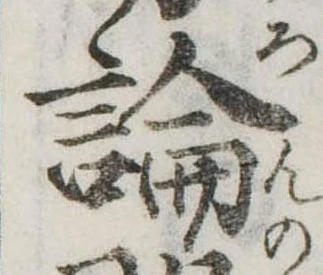 論
ろんの